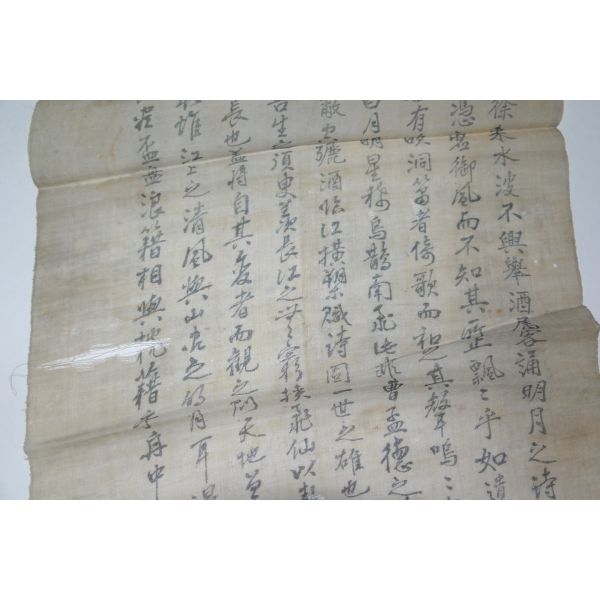 徐來水波不興舉酒屬誦明月之詩
憑虛御風而不知其所止飄〻乎如遺
有吹洞簫者倚歌而和之其聲嗚〻
月明星稀烏鵲南飛此非曹孟德之
釃酒臨江橫槊賦詩固一世之雄也
吾生之須臾羨長江之無窮挾飛仙以
長也蓋將自其變者而觀之則天地曾
惟江上之清風與山間之明月耳
盡杯盤狼籍相與枕籍乎舟中